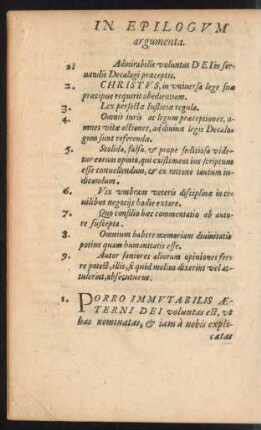 IN EPILOGVM
argumenta.
Admirabilis voluntas DEI in ser
uandis Decalogi præceptis.
2. CHRISTVS, in vniuersa lege suæ
præcipue requirit obedientiam.
3. Lex perfecta Iusticiæ regula.
4. Omnis iuris ac legum præceptiones, o-
mnes vitæ actiones, ad diuinæ legis Decalo-
gum sunt referendæ.
5. Stolida, falsa, & prope seditiosa vide-
tur eorum opinio, qui existimant ius scriptum
esse conuellendum, & ex ratione tantum iu-
dicandum.
6. Vix vmbram veteris disciplinæ in ci-
uilibus negocijs hodie extare.
7. Quo consilio hæc commentatio ab auto-
re suscepta.
8. Omnium habere memoriam diuinitatis
potius quam humanitatis esse.
9. Autor saniores aliorum opiniones fer-
re potest, illis, si quid melius dixerint vel at-
tulerint, obsecuturus.
1. PORRO IMMVTABILIS Æ-
TERNI DEI voluntas est, vt
hæ nominatas, & iam à nobis expli-
catas